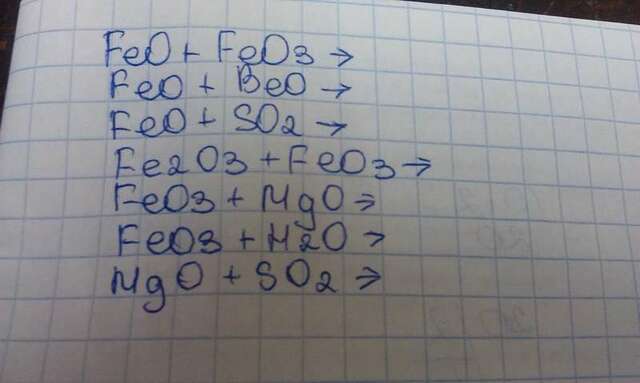 FeO + FeO3 →
FeO + BeO →
FeO + SO2 →
Fe2O3 + FeO3 →
FeO3 + MgO →
FeO3 + H2O →
MgO + SO2 →